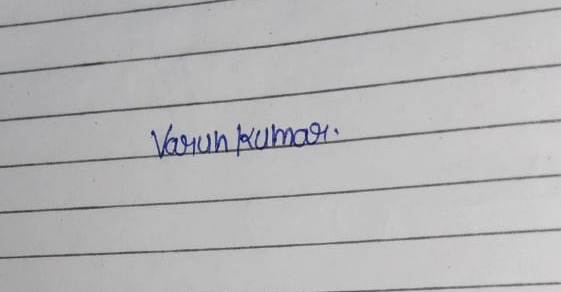 Varun Kumar.